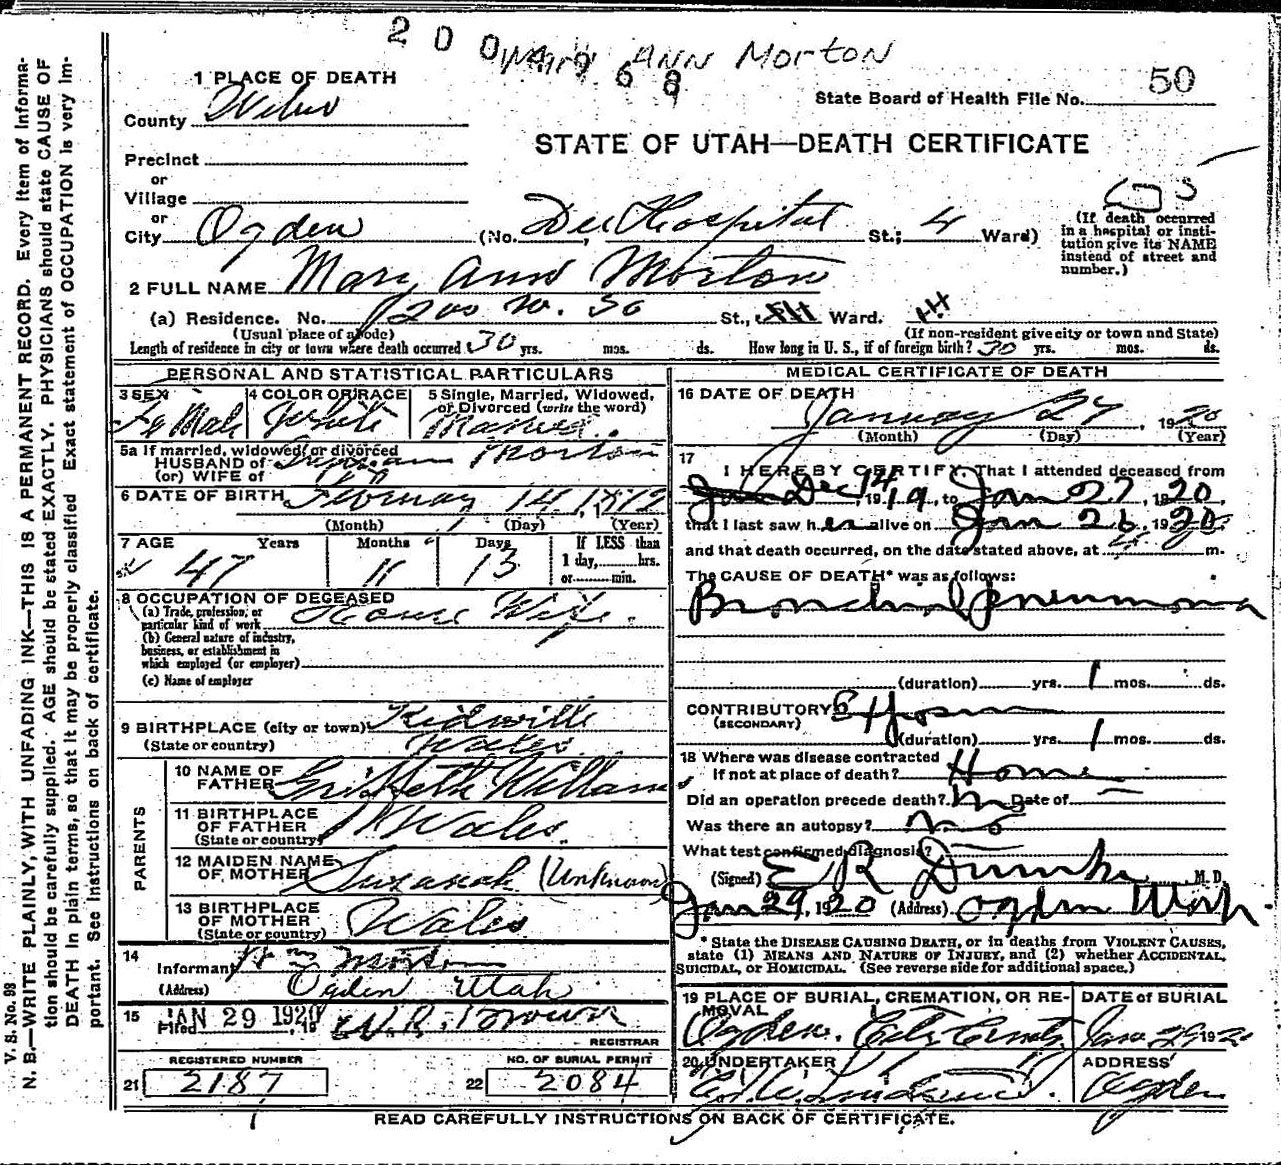 2 0 0 4 9 6 8
Mary Ann Morton
1 PLACE OF DEATH
County Weber
State Board of Health File No. 50
STATE OF UTAH—DEATH CERTIFICATE
Precinct
or
Village
or
City Ogden (No. Dee Hospital St.; 4 Ward)
(If death occurred
in a hospital or insti-
tution give its NAME
instead of street and
number.)
2 FULL NAME Mary Ann Morton
(a) Residence. No. 1200 W. 30 St., Ward.
(Usual place of abode) (If non-resident give city or town and State)
Length of residence in city or town where death occurred 30 yrs. mos. ds. How long in U. S., if of foreign birth? 30 yrs. mos. ds.
PERSONAL AND STATISTICAL PARTICULARS
3 SEX
Fe Male
4 COLOR OR RACE
White
5 Single, Married, Widowed,
or Divorced (write the word)
Married
5a If married, widowed, or divorced
HUSBAND of
(or) WIFE of Morton
6 DATE OF BIRTH February 14, 1872
(Month) (Day) (Year)
7 AGE Years Months Days If LESS than
1 day, hrs.
or min.
47 11 13
8 OCCUPATION OF DECEASED
(a) Trade, profession, or
particular kind of work House Wife
(b) General nature of industry,
business, or establishment in
which employed (or employer)
(c) Name of employer
9 BIRTHPLACE (city or town) Kidwille
(State or country) Wales
PARENTS
10 NAME OF
FATHER Griffeth Williams
11 BIRTHPLACE
OF FATHER Wales
(State or country)
12 MAIDEN NAME
OF MOTHER Suzanah (Unknown)
13 BIRTHPLACE
OF MOTHER Wales
(State or country)
14
Informant Morton
(Address) Ogden Utah
15 Filed JAN 29 1920, 19 W. R. Brown
REGISTRAR
REGISTERED NUMBER
21 2187
NO. OF BURIAL PERMIT
22 2084
MEDICAL CERTIFICATE OF DEATH
16 DATE OF DEATH
January 27, 1920
(Month) (Day) (Year)
17
I HEREBY CERTIFY, That I attended deceased from
Dec 14, 1919, to Jan 27, 1920,
that I last saw her alive on Jan 26, 1920
and that death occurred, on the date stated above, at 4 m.
The CAUSE OF DEATH* was as follows:
Bronchial Pneumonia
(duration) yrs. 1 mos. ds.
CONTRIBUTORY
(SECONDARY)
(duration) yrs. 1 mos. ds.
18 Where was disease contracted
If not at place of death? Home
Did an operation precede death? no Date of
Was there an autopsy? no
What test confirmed diagnosis?
(Signed) E R Dumke M. D.
Jan 29, 1920 (Address) Ogden Utah.
* State the DISEASE CAUSING DEATH, or in deaths from VIOLENT CAUSES,
state (1) MEANS AND NATURE OF INJURY, and (2) whether ACCIDENTAL,
SUICIDAL, or HOMICIDAL. (See reverse side for additional space.)
19 PLACE OF BURIAL, CREMATION, OR RE-
MOVAL
Ogden City Cemetry
DATE of BURIAL
Jan. 29 1920
20 UNDERTAKER
ADDRESS
Ogden
READ CAREFULLY INSTRUCTIONS ON BACK OF CERTIFICATE.
V. S. No. 98
N. B.—WRITE PLAINLY, WITH UNFADING INK—THIS IS A PERMANENT RECORD. Every item of informa-
tion should be carefully supplied. AGE should be stated EXACTLY. PHYSICIANS should state CAUSE OF
DEATH in plain terms, so that it may be properly classified. Exact statement of OCCUPATION is very im-
portant. See instructions on back of certificate.